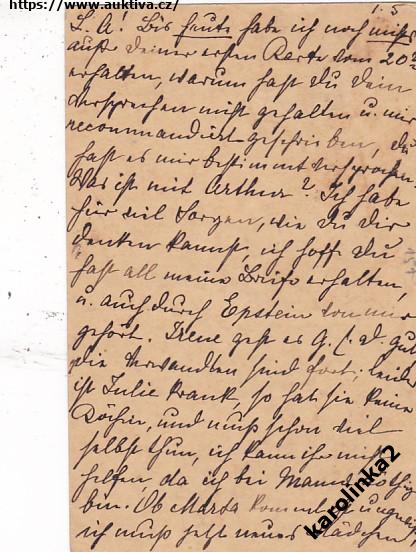 https://www.auktiva.cz/
1.5
L. A! Bis heute habe ich noch nichts
außer deiner ersten Karte vom 20ten
erhalten, warum hast du dein
Versprechen nicht gehalten u. mir
recommandirt geschrieben, du
hast es mir bestimmt versprochen.
Was ist mit Arthur? Ich habe
für viel Sorgen, wie du dir
denken kannst, ich hoffe du
hast all meine Briefe erhalten,
u. auch durch Epstein von mir
gehört. Irene geht es G. l. d. gut
die Verwandten sind fort, leider
ist Julie krank, so hat sie keine
Köchin, und muß schon viel
selbst thun, ich kann ihr nicht
helfen, da ich bei Mama nöthig
bin. Ob Marta kommt ist ungewiß
ich muß jetzt neues Mädchen
karolinka2